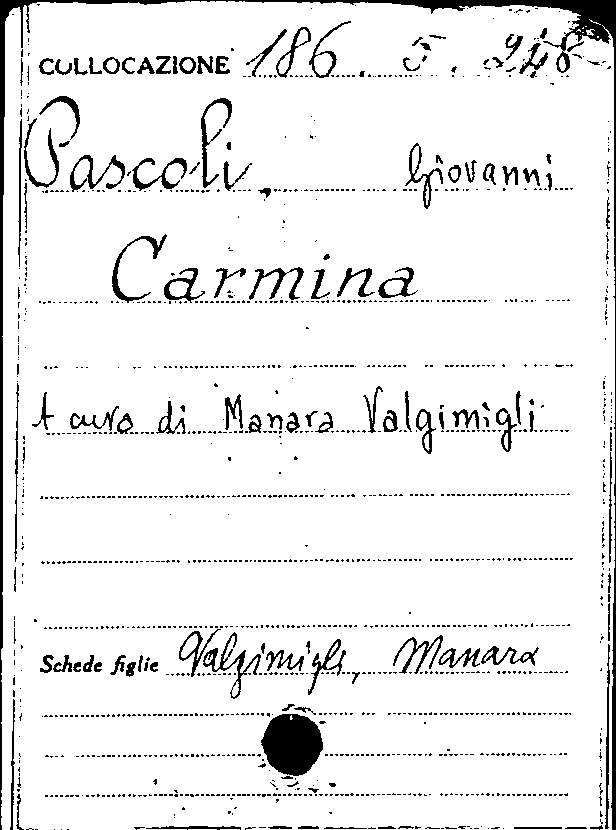 COLLOCAZIONE 186. 5. 248
Pascoli, Giovanni
Carmina
A cura di Manara Valgimigli
Schede figlie Valgimigli, Manara